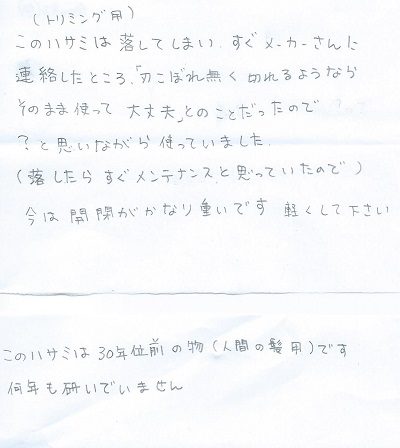 (トリミング用)
このハサミは落してしまい、すぐメーカーさんに
連絡したところ、「刃こぼれ無く切れるようなら
そのまま使って大丈夫」とのことだったので
?と思いながら使っていました。
(落したらすぐメンテナンスと思っていたので)
今は開閉がかなり重いです 軽くして下さい
このハサミは30年位前の物(人間の髪用)です
何年も研いでいません